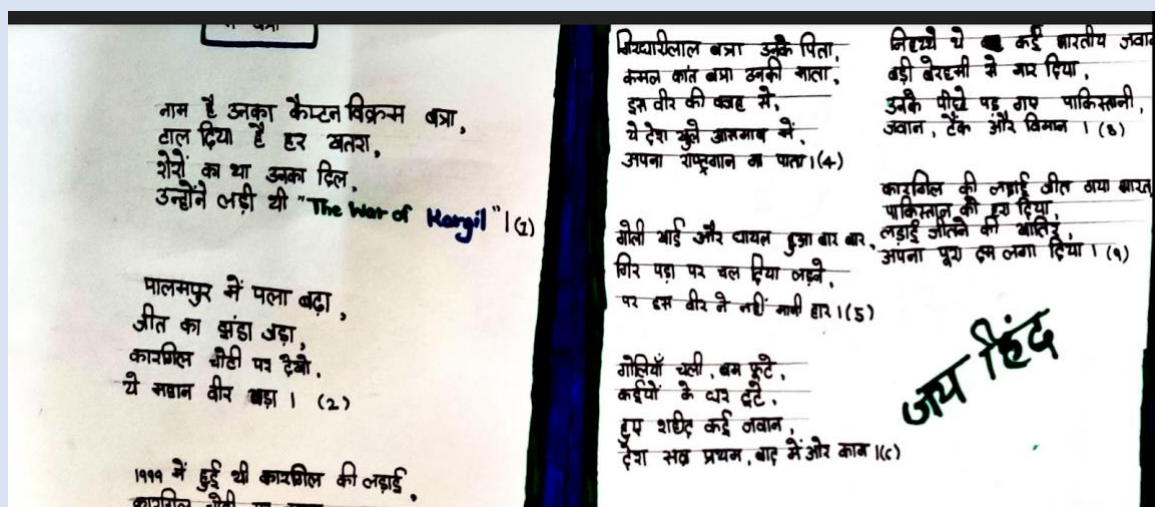 बत्रा
नाम है उनका कैप्टन विक्रम बत्रा,
टाल दिया है हर खतरा,
शेरों का था उनका दिल,
उन्होंने लड़ी थी "The War of Kargil"।(1)
पालमपुर में पला बढ़ा,
जीत का झंडा जड़ा,
कारगिल चोटी पर देखो,
ये महान वीर खड़ा। (2)
1999 में हुई थी कारगिल की लड़ाई,
कारगिल चोटी
गिरधारीलाल बत्रा उनके पिता,
कमल कांत बत्रा उनकी माता,
इस वीर की वजह से,
ये देश खुले आसमान में,
अपना राष्ट्रगान गा पाता।(4)
गोली खाई और घायल हुआ बार बार,
गिर पड़ा पर चल दिया लड़ने,
पर इस वीर ने नहीं मानी हार।(5)
गोलियाँ चली, बम फूटे,
कईयों के घर टूटे,
हुए शहीद कई जवान,
देश सब प्रथम, बाद में और काम।(
निहत्थे थे कई भारतीय जवान
बड़ी बेरहमी से मार दिया,
उनके पीछे पड़ गए पाकिस्तानी,
जवान, टैंक और विमान। (8)
कारगिल की लड़ाई जीत गया भारत,
पाकिस्तान को हरा दिया,
लड़ाई जीतने की खातिर,
अपना पूरा दम लगा दिया। (9)
जय हिंद